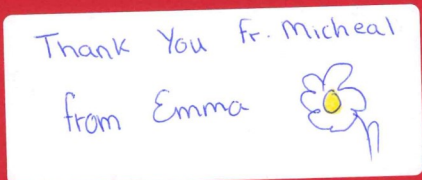 Thank You Fr. Micheal
from Emma